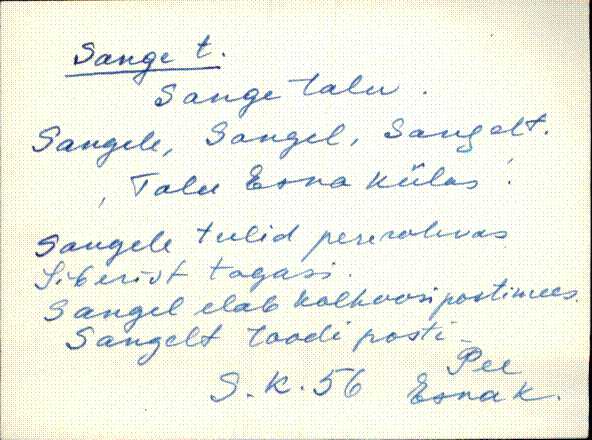 Sange t.
Sange talu.
Sangele, Sangel, Sangelt.
, Talu Esna külas'.
Sangele tulid pererahvas
Siberist tagasi.
Sangel elab kolhoosi postimees.
Sangelt toodi posti
S.K. 56 Pee
Esna k.